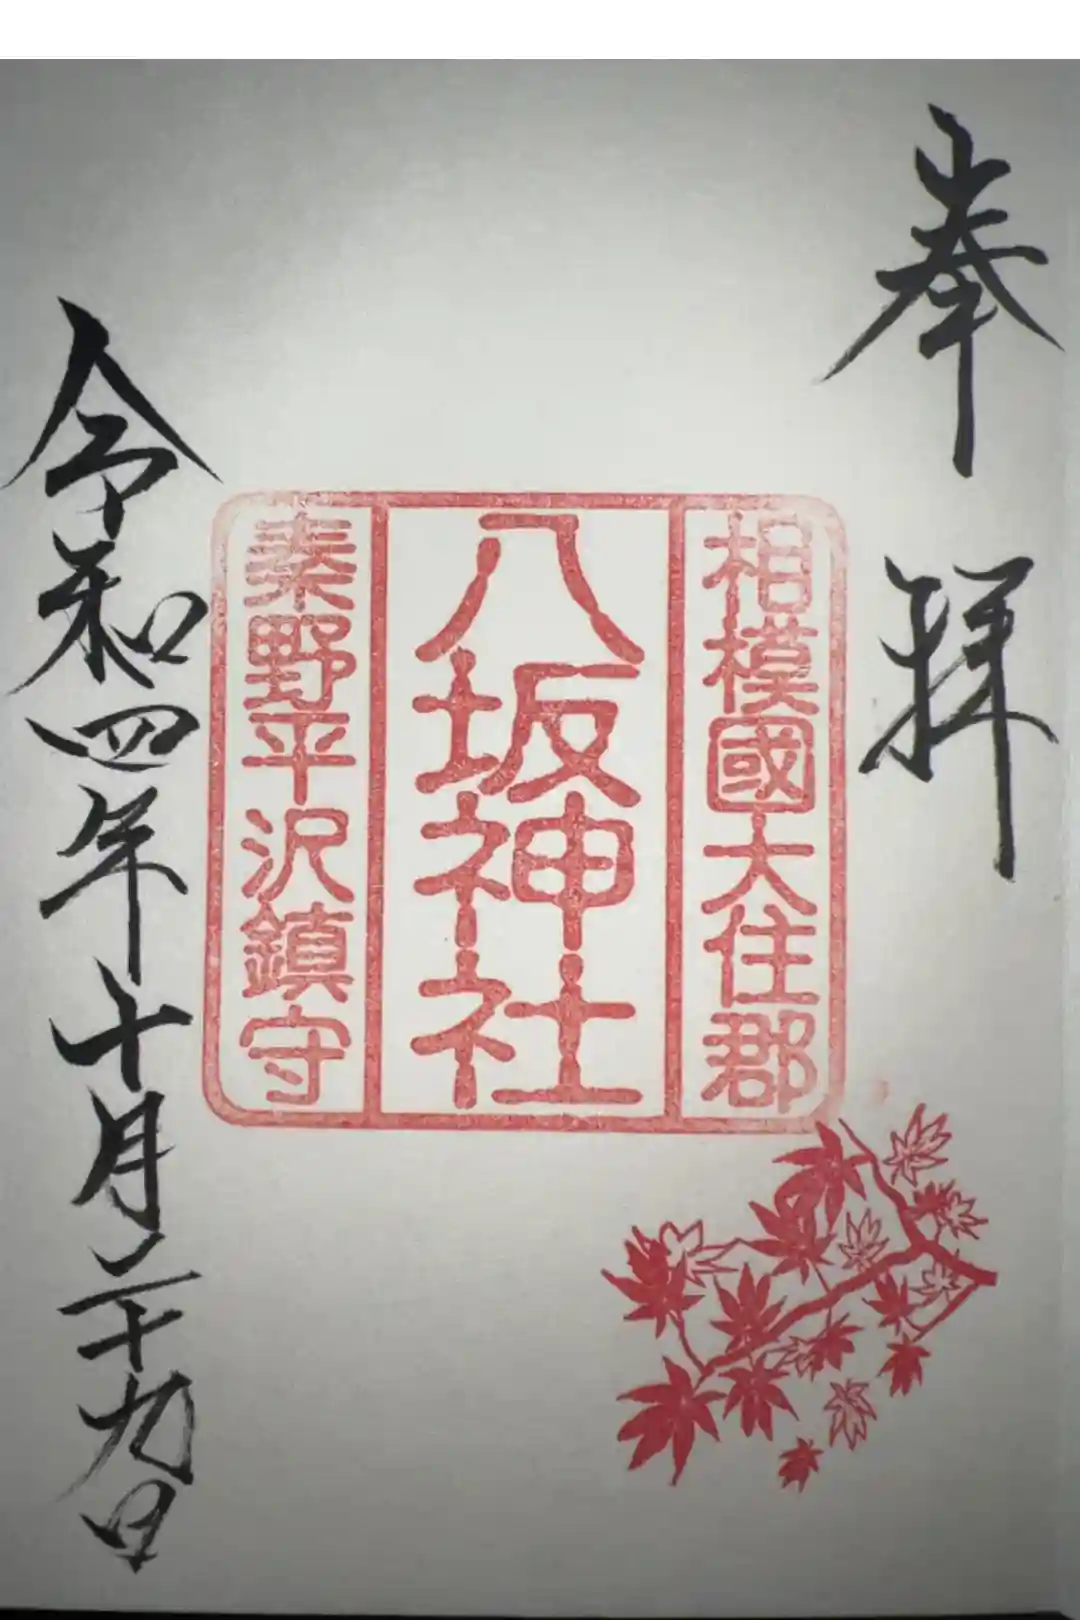 奉拝
相模國大住郡
八坂神社
秦野平沢鎮守
令和四年十月二十九日